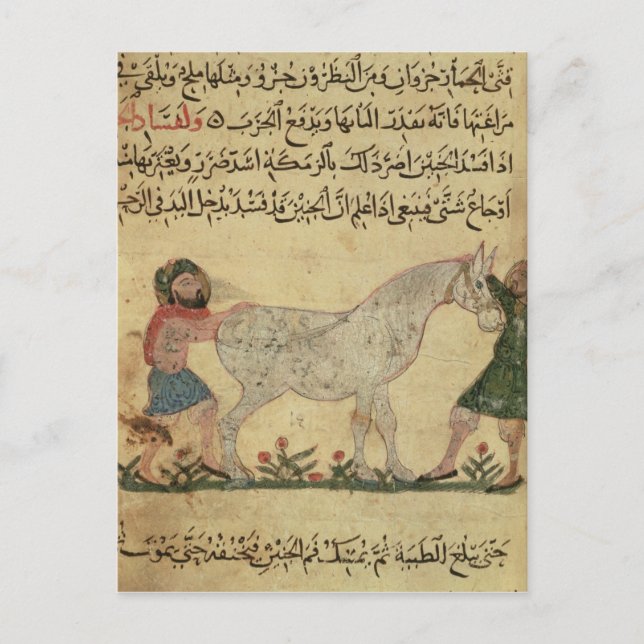 فتى الحمأ جزوان ومن النظرون جزو ومثلها ملح ويلقى في
مراغتها فانه يقدر المابها ويدفع الحرب ولفساد الج
اذا فسد الجنين اضر ذلك بالرمكة اشد ضرر ويعتريها منه
أوجاع شتى فينبغي اذا علم ان الجنين قد فسد يدخل اليد في الرحم
حتى يبلغ الطبية ثم يمسك فم الجنين فيخنقه حتى يموت